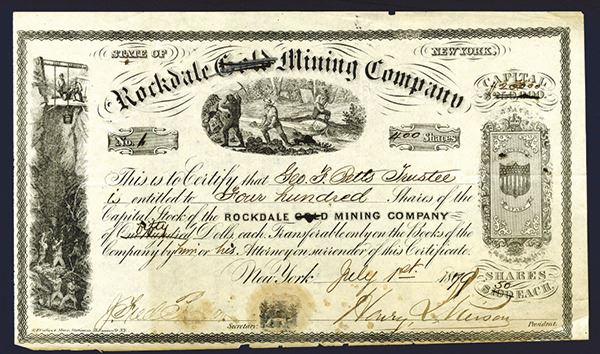 STATE OF NEW YORK.
Rockdale Gold Mining Company
CAPITAL
No. 1
400 Shares
This is to Certify that Geo. F. Betts Trustee
is entitled to Four hundred Shares of the
Capital Stock of the ROCKDALE GOLD MINING COMPANY
of Fifty One Hundred Dolls. each. Transferable only on the Books of the
Company by him or his Attorney on surrender of this Certificate.
New York July 1st 1879
SHARES
50
$100 EACH.
Secretary.
Henry
President.